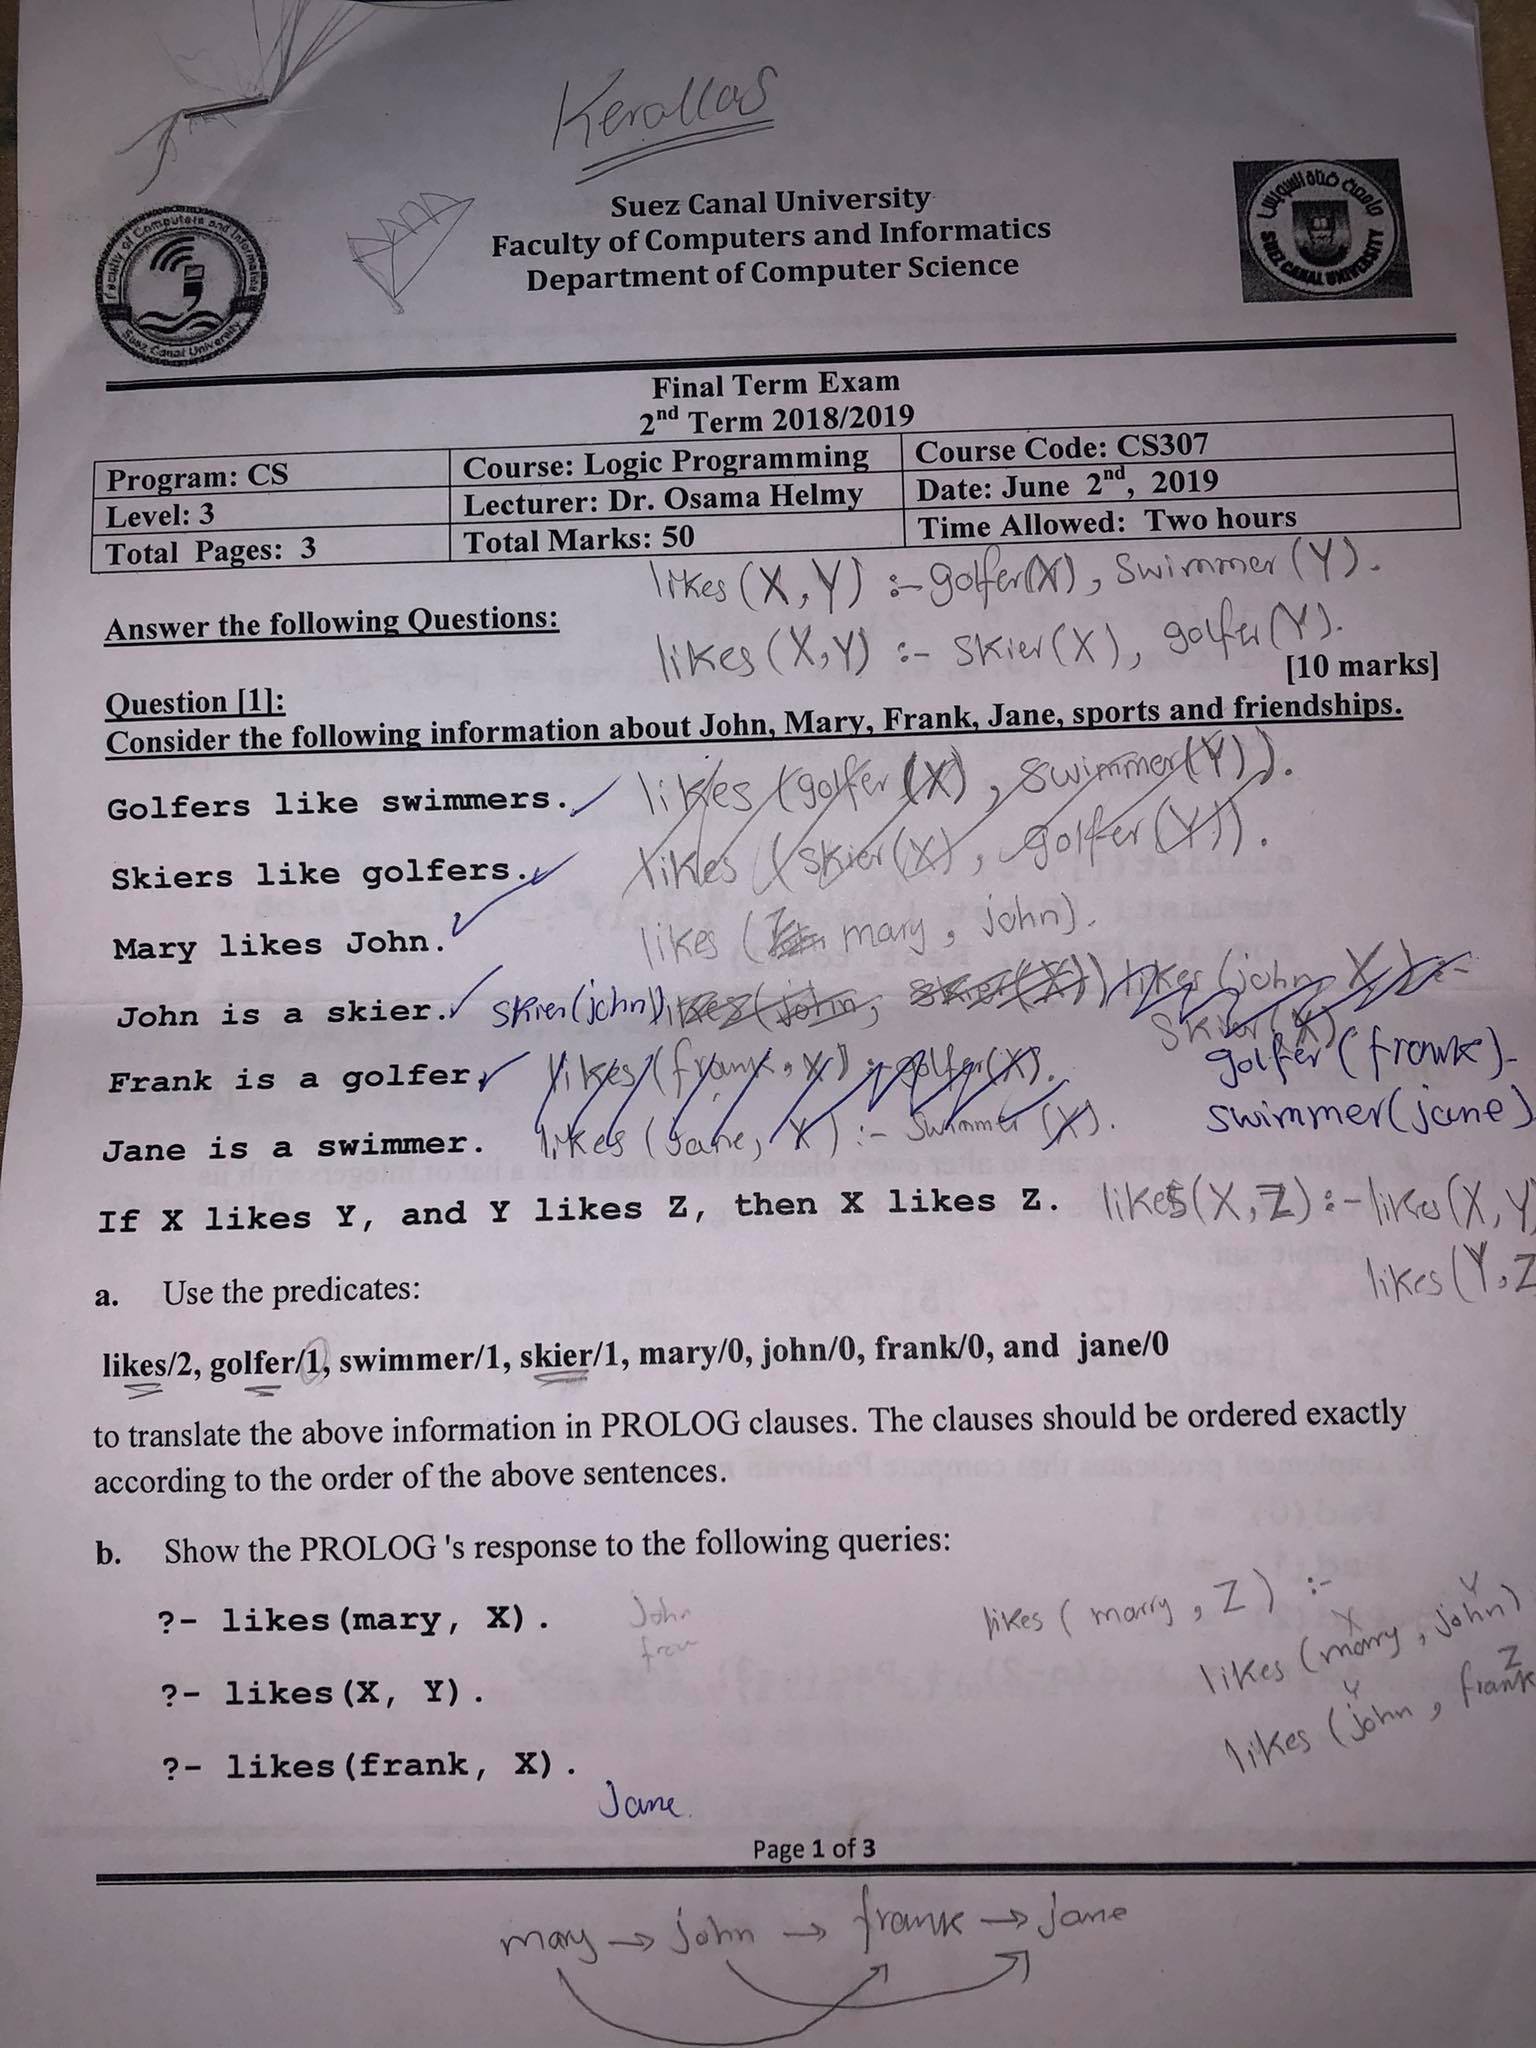 Kerollas
Suez Canal University
Faculty of Computers and Informatics
Department of Computer Science
Faculty of Computers and Informatics
Suez Canal University
جامعة قناة السويس
SUEZ CANAL UNIVERSITY
Final Term Exam
2nd Term 2018/2019
Program: CS Course: Logic Programming Course Code: CS307
Level: 3 Lecturer: Dr. Osama Helmy Date: June 2nd, 2019
Total Pages: 3 Total Marks: 50 Time Allowed: Two hours
likes (X, Y) :- golfer(X), swimmer (Y).
Answer the following Questions:
likes (X, Y) :- skier (X), golfer (Y).
[10 marks]
Question [1]:
Consider the following information about John, Mary, Frank, Jane, sports and friendships.
Golfers like swimmers. likes (golfer (X), swimmer (Y)).
Skiers like golfers. likes (skier (X), golfer (Y)).
Mary likes John. likes (mary, john).
John is a skier. skier (john) likes (john, skier (X)) likes (john, X) :-
skier (X)
Frank is a golfer. likes (frank, X) :- golfer (X). golfer (frank).
Jane is a swimmer. likes (jane, X) :- swimmer (X). swimmer (jane)
If X likes Y, and Y likes Z, then X likes Z. likes (X, Z) :- likes (X, Y)
likes (Y, Z
a. Use the predicates:
likes/2, golfer/1, swimmer/1, skier/1, mary/0, john/0, frank/0, and jane/0
to translate the above information in PROLOG clauses. The clauses should be ordered exactly
according to the order of the above sentences.
b. Show the PROLOG 's response to the following queries:
?- likes(mary, X). John
fran
likes ( marry, Z ) :-
X Y
likes (marry, john)
?- likes(X, Y).
Y Z
likes (john, frank
?- likes(frank, X).
Jane.
Page 1 of 3
mary → john → frank → jane